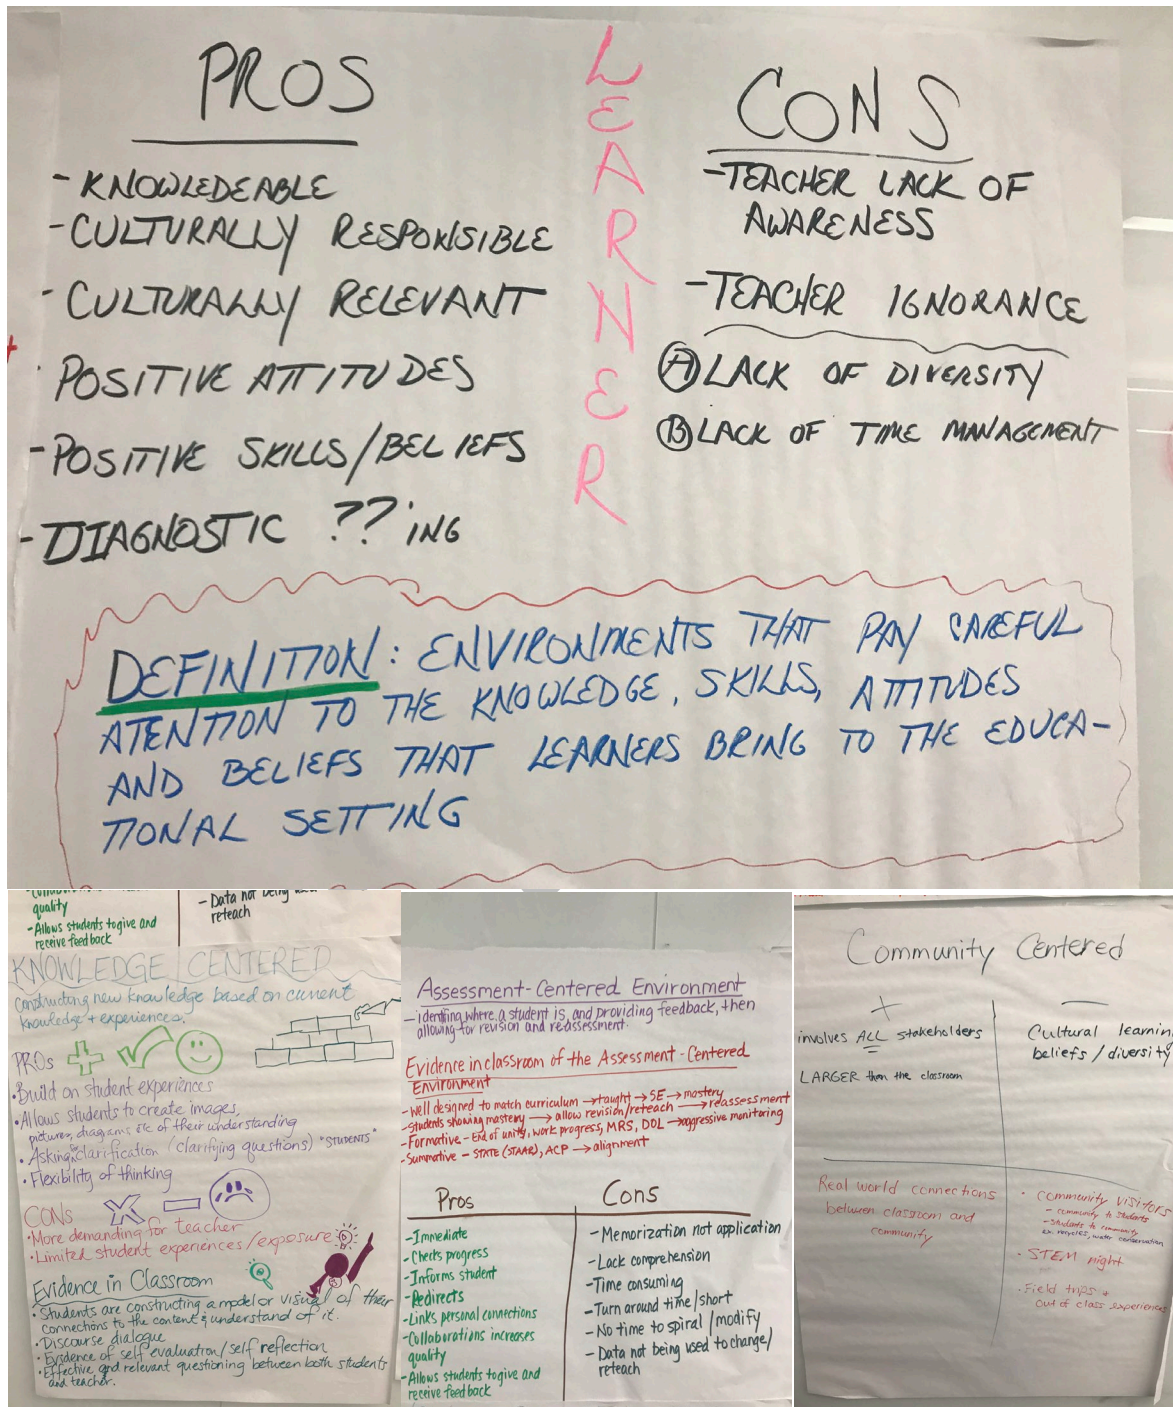 PROS
- KNOWLEDEABLE
- CULTURALLY RESPONSIBLE
- CULTURALLY RELEVANT
· POSITIVE ATTITUDES
- POSITIVE SKILLS/BELIEFS
- DIAGNOSTIC ??'ING
LEARNER
CONS
- TEACHER LACK OF
AWARENESS
- TEACHER IGNORANCE
Ⓐ LACK OF DIVERSITY
Ⓑ LACK OF TIME MANAGEMENT
DEFINITION: ENVIRONMENTS THAT PAY CAREFUL
ATENTION TO THE KNOWLEDGE, SKILLS, ATTITUDES
AND BELIEFS THAT LEARNERS BRING TO THE EDUCA-
TIONAL SETTING
quality
- Allows students to give and
receive feedback
- Data not being
reteach
KNOWLEDGE CENTERED
Constructing new knowledge based on current
knowledge + experiences.
PROs
• Build on student experiences
• Allows students to create images,
pictures, diagrams etc of their understanding
• Asking for clarification (clarifying questions) "STUDENTS"
• Flexibility of thinking
CONs
• More demanding for teacher
• Limited student experiences/exposure
Evidence in Classroom
• Students are constructing a model or visual of their
connections to the content & understand of it.
• Discourse dialogue
• Evidence of self evaluation/self reflection
• Effective and relevant questioning between both students
and teacher.
Assessment-Centered Environment
- identifing where a student is, and providing feedback, then
allowing for revision and reassessment.
Evidence in classroom of the Assessment-Centered
Environment
- Well designed to match curriculum → taught → SE → mastery
- Students showing mastery → allow revision/reteach → reassessment
- Formative - End of unity, work progress, MRS, DOL → aggressive monitoring
- Summative - STATE (STAAR), ACP → alignment
Pros
- Immediate
- Checks progress
- Informs student
- Redirects
- Links personal connections
- Collaborations increases
quality
- Allows students to give and
receive feedback
Cons
- Memorization not application
- Lack comprehension
- Time consuming
- Turn around time/short
- No time to spiral/modify
- Data not being used to change/
reteach
Community Centered
+
involves ALL stakeholders
LARGER than the classroom
—
Cultural learnin
beliefs/diversity
Real world connections
between classroom and
community
• community visitors
- community to students
- Students to community
ex. recycles, water conservation
• STEM night
• Field trips +
out of class experiences